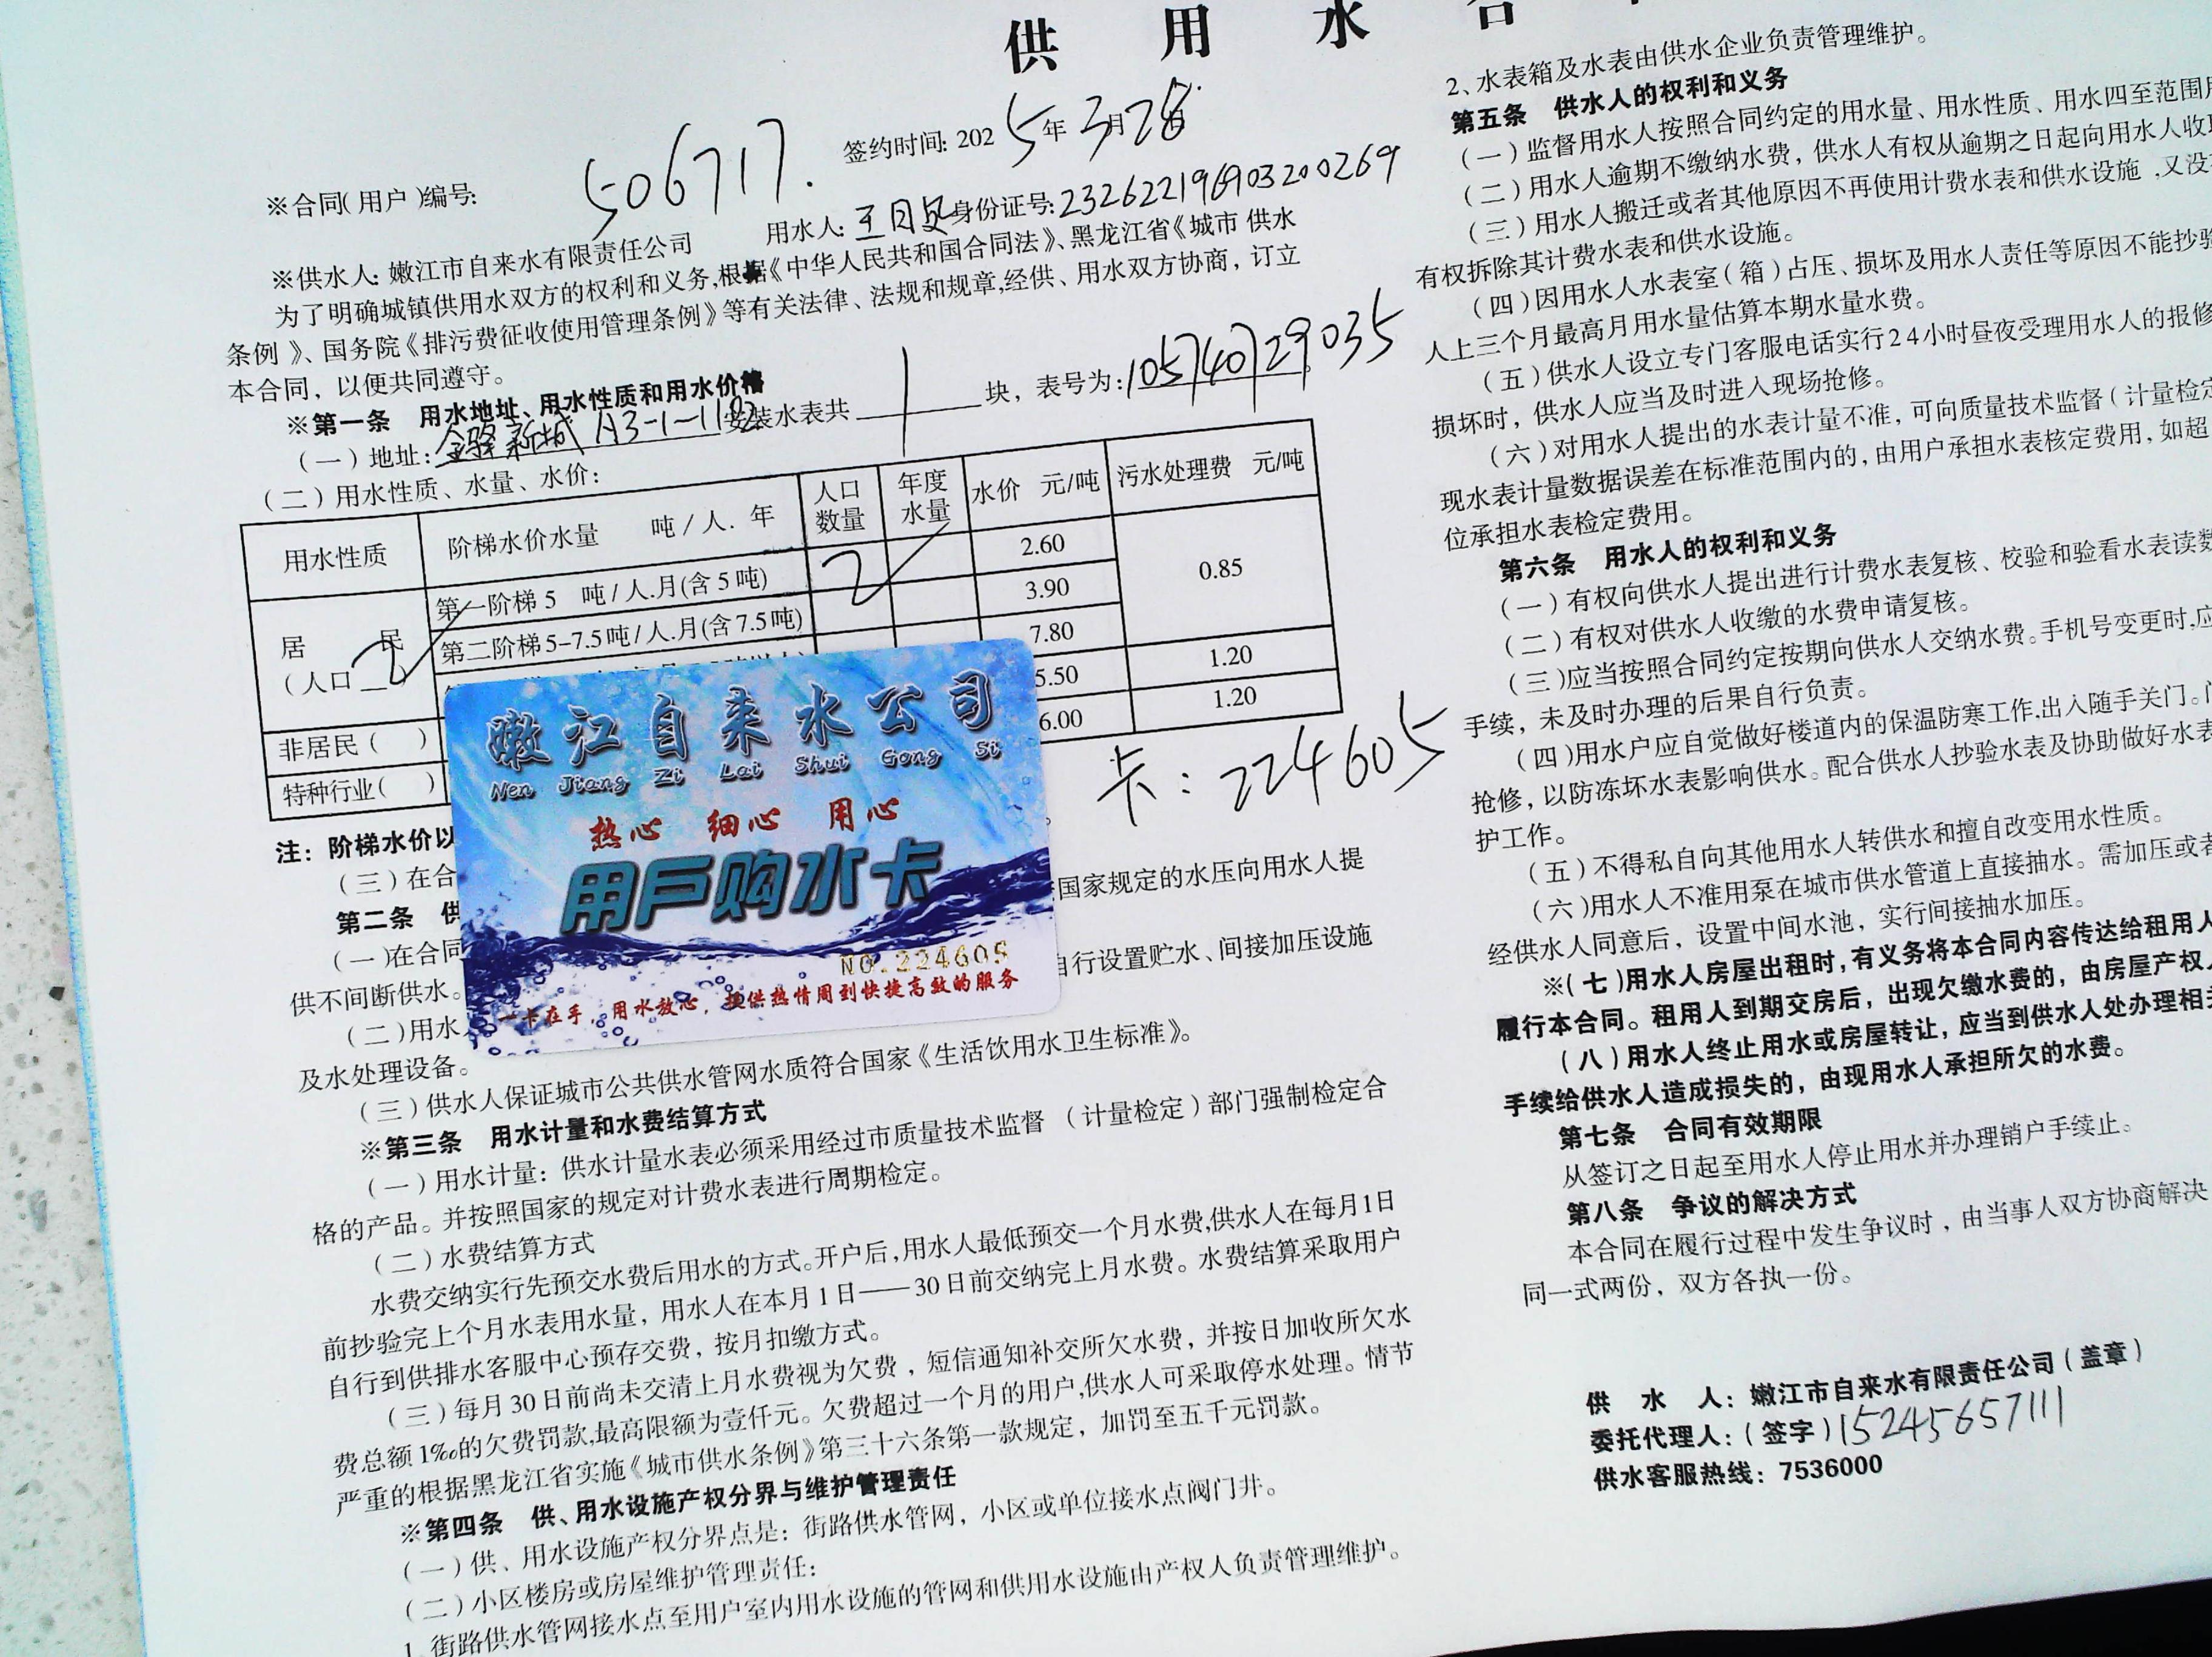 供 用 水 合
签约时间: 2025年3月28
※合同(用户)编号: 506717.
用水人: 身份证号: 232622196903200269
※供水人: 嫩江市自来水有限责任公司
为了明确城镇供用水双方的权利和义务,根据《中华人民共和国合同法》、黑龙江省《城市 供水
条例 》、国务院《排污费征收使用管理条例》等有关法律、法规和规章,经供、用水双方协商，订立
本合同，以便共同遵守。
※第一条 用水地址、用水性质和用水价格
(一)地址: 金驿新城 A3-1-1102 安装水表共 1 块，表号为: 105740729035
(二)用水性质、水量、水价:
用水性质 阶梯水价水量 吨/人. 年 人口数量 年度水量 水价 元/吨 污水处理费 元/吨
居 民 (人口 2 ) 第一阶梯 5 吨/人.月(含 5 吨) 2 2.60 0.85
第二阶梯 5-7.5吨/人.月(含 7.5吨) 3.90
7.80
非居民( ) 5.50 1.20
特种行业( ) 6.00 1.20
卡: 224605
嫩江自来水公司
Nen Jiang Zi Lai Shui Gong Si
热心 细心 用心
用戶购水卡
NO.224605
一卡在手，用水放心，提供热情周到快捷高效的服务
注: 阶梯水价以
(三)在合
第二条 供
国家规定的水压向用水人提
(一)在合同
供不间断供水。
自行设置贮水、间接加压设施
(二)用水
及水处理设备。
(三)供水人保证城市公共供水管网水质符合国家《生活饮用水卫生标准》。
※第三条 用水计量和水费结算方式
(一)用水计量: 供水计量水表必须采用经过市质量技术监督 (计量检定)部门强制检定合
格的产品。并按照国家的规定对计费水表进行周期检定。
(二)水费结算方式
水费交纳实行先预交水费后用水的方式。开户后,用水人最低预交一个月水费,供水人在每月1日
前抄验完上个月水表用水量，用水人在本月 1 日——30 日前交纳完上月水费。水费结算采取用户
自行到供排水客服中心预存交费，按月扣缴方式。
(三)每月 30 日前尚未交清上月水费视为欠费，短信通知补交所欠水费，并按日加收所欠水
费总额 1‰的欠费罚款,最高限额为壹仟元。欠费超过一个月的用户,供水人可采取停水处理。情节
严重的根据黑龙江省实施《城市供水条例》第三十六条第一款规定，加罚至五千元罚款。
※第四条 供、用水设施产权分界与维护管理责任
(一)供、用水设施产权分界点是: 街路供水管网，小区或单位接水点阀门井。
(二)小区楼房或房屋维护管理责任:
1、街路供水管网接水点至用户室内用水设施的管网和供用水设施由产权人负责管理维护。
2、水表箱及水表由供水企业负责管理维护。
第五条 供水人的权利和义务
(一)监督用水人按照合同约定的用水量、用水性质、用水四至范围
(二)用水人逾期不缴纳水费，供水人有权从逾期之日起向用水人收
(三)用水人搬迁或者其他原因不再使用计费水表和供水设施 ,又没
有权拆除其计费水表和供水设施。
(四)因用水人水表室(箱)占压、损坏及用水人责任等原因不能抄
人上三个月最高月用水量估算本期水量水费。
(五)供水人设立专门客服电话实行24小时昼夜受理用水人的报修
损坏时，供水人应当及时进入现场抢修。
(六)对用水人提出的水表计量不准，可向质量技术监督(计量检定
现水表计量数据误差在标准范围内的，由用户承担水表核定费用，如超
位承担水表检定费用。
第六条 用水人的权利和义务
(一)有权向供水人提出进行计费水表复核、校验和验看水表读数
(二)有权对供水人收缴的水费申请复核。
(三)应当按照合同约定按期向供水人交纳水费。手机号变更时,应
手续，未及时办理的后果自行负责。
(四)用水户应自觉做好楼道内的保温防寒工作,出入随手关门。
抢修，以防冻坏水表影响供水。配合供水人抄验水表及协助做好水表
护工作。
(五)不得私自向其他用水人转供水和擅自改变用水性质。
(六)用水人不准用泵在城市供水管道上直接抽水。需加压或者
经供水人同意后，设置中间水池，实行间接抽水加压。
※(七)用水人房屋出租时,有义务将本合同内容传达给租用人
履行本合同。租用人到期交房后，出现欠缴水费的，由房屋产权人
(八)用水人终止用水或房屋转让，应当到供水人处办理相
手续给供水人造成损失的，由现用水人承担所欠的水费。
第七条 合同有效期限
从签订之日起至用水人停止用水并办理销户手续止。
第八条 争议的解决方式
本合同在履行过程中发生争议时，由当事人双方协商解决
同一式两份，双方各执一份。
供 水 人: 嫩江市自来水有限责任公司(盖章)
委托代理人: (签字) 15245657111
供水客服热线: 7536000